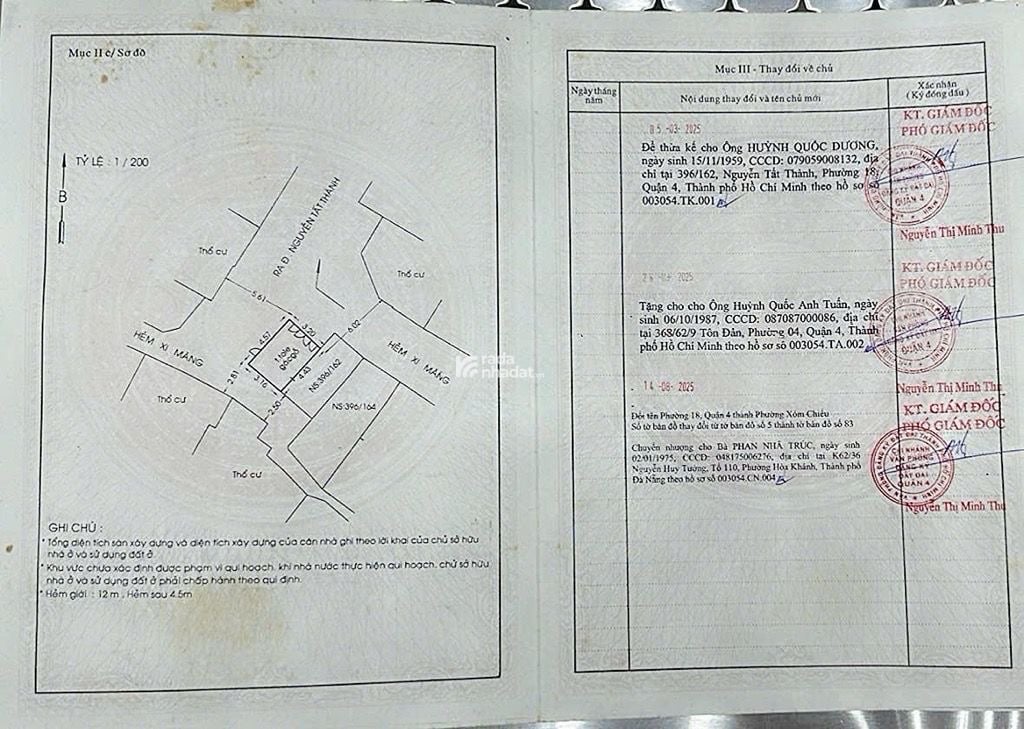 Mục II c/ Sơ đồ
TỶ LỆ : 1 / 200
B
RA Đ. NGUYỄN TẤT THÀNH
Thổ cư
Thổ cư
5.61
3.20
6.02
4.57
HẺM XI MĂNG
HẺM XI MĂNG
2.81
3.16
4.43
NS:396/162
2.50
NS:396/164
Thổ cư
Thổ cư
rada
nhadat
GHI CHÚ :
* Tổng diện tích sàn xây dựng và diện tích xây dựng của căn nhà ghi theo lời khai của chủ sở hữu
nhà ở và sử dụng đất ở
* Khu vực chưa xác định được phạm vi qui hoạch, khi nhà nước thực hiện qui hoạch, chủ sở hữu
nhà ở và sử dụng đất ở phải chấp hành theo qui định.
* Hẻm giới : 12 m , Hẻm sau 4.5m
Mục III - Thay đổi về chủ
Ngày tháng
năm
Nội dung thay đổi và tên chủ mới
Xác nhận
(Ký đóng dấu)
05-03-2025
Để thừa kế cho Ông HUỲNH QUỐC DƯƠNG,
ngày sinh 15/11/1959, CCCD: 079059008132, địa
chỉ tại 396/162, Nguyễn Tất Thành, Phường 18,
Quận 4, Thành phố Hồ Chí Minh theo hồ sơ số
003054.TK.001
KT. GIÁM ĐỐC
PHÓ GIÁM ĐỐC
QUẬN 4
Nguyễn Thị Minh Thu
2025
Tặng cho cho Ông Huỳnh Quốc Anh Tuấn, ngày
sinh 06/10/1987, CCCD: 087087000086, địa chỉ
tại 368/62/9 Tôn Đản, Phường 04, Quận 4, Thành
phố Hồ Chí Minh theo hồ sơ số 003054.TA.002
KT. GIÁM ĐỐC
PHÓ GIÁM ĐỐC
QUẬN 4
Nguyễn Thị Minh Thu
14-08-2025
Đổi tên Phường 18, Quận 4 thành Phường Xóm Chiếu
Số tờ bản đồ thay đổi từ tờ bản đồ số 5 thành tờ bản đồ số 83
Chuyển nhượng cho Bà PHAN NHÃ TRÚC, ngày sinh
02/01/1975, CCCD: 048175006276, địa chỉ tại K62/36
Nguyễn Huy Tưởng, Tổ 110, Phường Hòa Khánh, Thành phố
Đà Nẵng theo hồ sơ số 003054.CN.004
KT. GIÁM ĐỐC
PHÓ GIÁM ĐỐC
CHI NHÁNH
VĂN PHÒNG
ĐĂNG KÝ
ĐẤT ĐAI
QUẬN 4
Nguyễn Thị Minh Thu